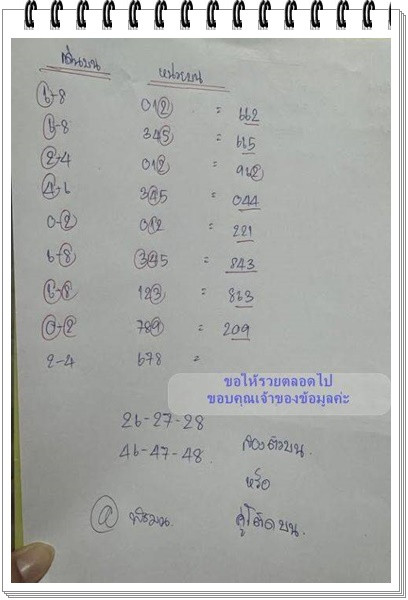 วิ่งบน หน่วยบน
6-8 012 = 662
6-8 345 = 615
2-4 012 = 962
4-6 345 = 044
0-2 012 = 221
6-8 345 = 843
6-8 123 = 863
0-2 789 = 209
2-4 678 =
ขอให้รวยตลอดไป
ขอบคุณเจ้าของข้อมูลค่ะ
26-27-28
46-47-48 สองตัวบน.
หรือ
@ คู่โต๊ดบน.